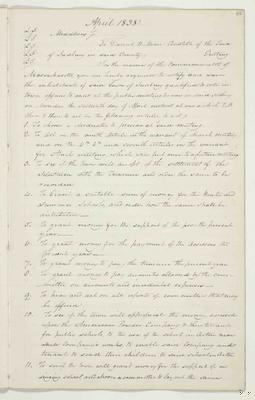 April 1838.
Middlesex ss.
To Daniel H. Moore Constable of the Town
of Sudbury in said County. Greeting
In the name of the Commonwealth of
Massachusetts you are hereby required to notify and warn
the inhabitants of said Town of Sudbury qualified to vote in
Town affairs to meet at the
on Monday the day of April
then & there to act on the following articles to wit,
1. To choose a moderator to preside at said meeting.
2. To act on the ninth article in the warrant of March meeting
and on the 4th 5th and seventh articles in the warrant
for April meeting which were put over to a future meeting
3. To see if the town will accept of the settlement of the
Selectmen with the Treasurer and order the same to be
recorded
4. To grant a suitable sum of money for the Winter and
Summer Schools, and order how the same shall be
5. To grant money for the support of the poor the present
year.
6. To grant money for the payment of the Assessors the
present year.
7. To grant money to pay the Treasurer the present year
8. To grant money to pay accounts allowed by the com-
mittee on accounts and incidental expenses.
9. To hear and act on all reports of committees that may
be offered
10. To see if the town will appropriate the money assessed
upon the American Powder Company & their tenants
for public schools, to the use of the school in Acton near
said Company's works, to enable said Company and
tenants to send their children to said school in Acton
11. To see if the town will grant money for the support of a
singing school and choose a committee to lay out the same